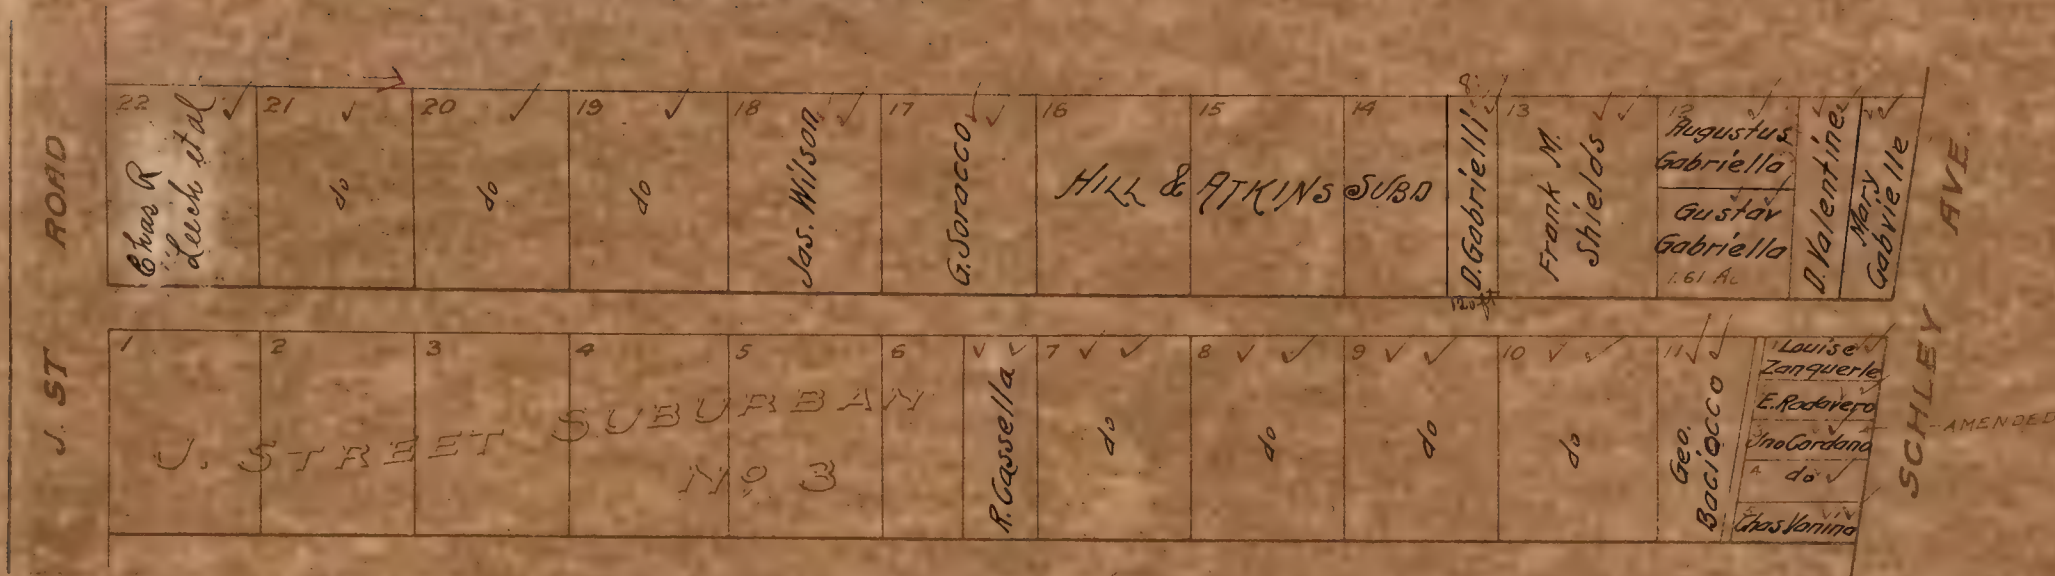 J. ST ROAD
22
Chas R
Leich et al
21
do
20
do
19
do
18
Jas. Wilson
17
G. Soracco
16
15
14
HILL & ATKINS SUBD
D. Gabrielli
120 ft
13
Frank M.
Shields
12
Augustus
Gabriella
Gustav
Gabriella
1.61 Ac
D. Valentine
Mary
Gabrielle
SCHLEY AVE.
1
2
3
4
5
6
J. STREET SUBURBAN
No 3
R. Cassella
7
do
8
do
9
do
10
do
11
Geo.
Baciocco
1 Louise
Zanquerle
E. Rodavero
3
Jno Cordano
4
do
5
Chas Vanina
AMENDED